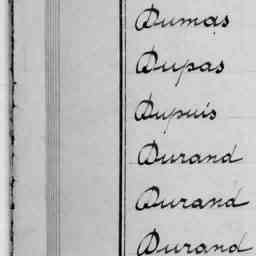 Dumas
Dupas
Dupuis
Durand
Durand
Durand